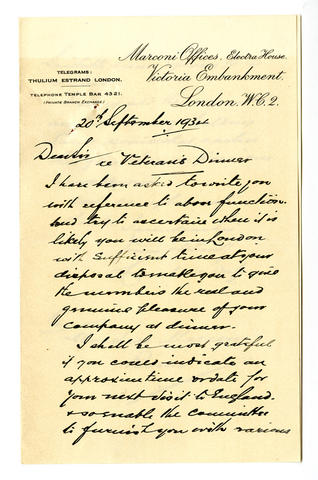 Marconi Offices, Electra House,
TELEGRAMS:
THULIUM ESTRAND LONDON.
Victoria Embankment,
TELEPHONE TEMPLE BAR 4321.
(PRIVATE BRANCH EXCHANGE)
London, W.C.2.
20th September 1934
Dear Sir
re Veterans Dinner
I have been asked to write you
with reference to above function
and try to ascertain when it is
likely you will be in London
with sufficient time at your
disposal to make you to give
the members the real and
genuine pleasure of your
company at dinner.
I shall be most grateful
if you could indicate an
approximate time or date for
your next visit to England.
& so enable the committee
to furnish you with various